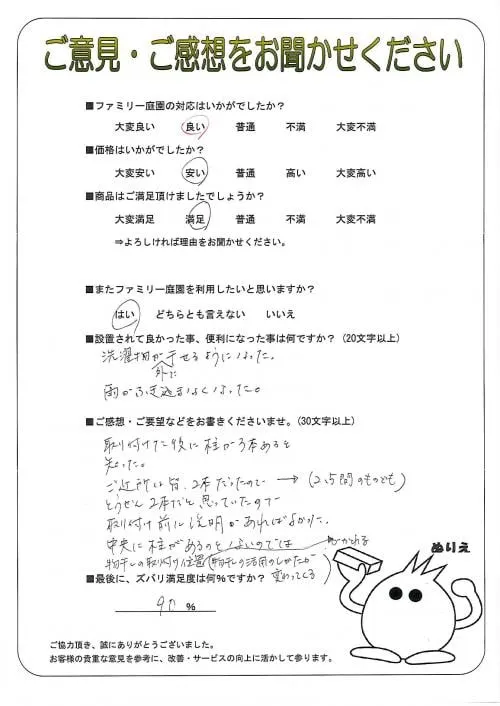 ご意見・ご感想をお聞かせください
■ファミリー庭園の対応はいかがでしたか?
大変良い 良い 普通 不満 大変不満
■価格はいかがでしたか?
大変安い 安い 普通 高い 大変高い
■商品はご満足頂けましたでしょうか?
大変満足 満足 普通 不満 大変不満
⇒よろしければ理由をお聞かせください。
■またファミリー庭園を利用したいと思いますか?
はい どちらとも言えない いいえ
■設置されて良かった事、便利になった事は何ですか?(20文字以上)
洗濯物が外に干せるようになった。
雨がふき込まなくなった。
■ご感想・ご要望などをお書きくださいませ。(30文字以上)
取り付けた後に柱が3本あると
知った。
ご近所は皆、2本だったので → (2、5間のものでも)
とうぜん2本だと思っていたので
取り付け前に説明があればよかった。
中央に柱があるのとないのでは
物干しの取り付け位置(物干しの活用のしかたが
変わってくる
■最後に、ズバリ満足度は何%ですか?
90 %
ぬりえ
ご協力頂き、誠にありがとうございました。
お客様の貴重な意見を参考に、改善・サービスの向上に活かして参ります。